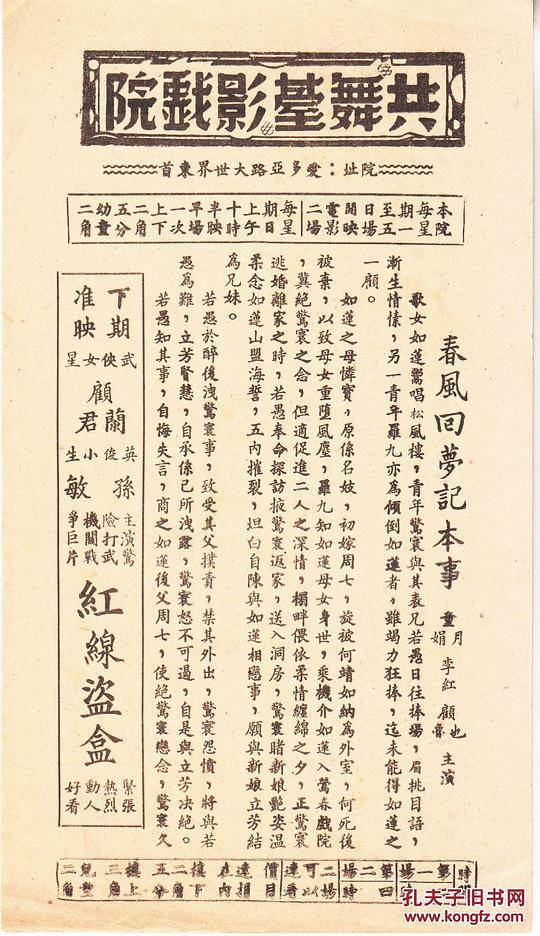 共舞臺影戲院
院址：愛多亞路大世界東首
本院每星期一至五日場開映電影二場
每星期日上午十時半映早場一次上下二角五分幼童二角
春風回夢記本事
童月娟 李紅 顧也魯 主演
歌女如蓮鬻唱松風樓，青年驚寰與其表兄若愚日往捧場，眉挑目語，
漸生情愫，另一青年羅九亦為傾倒如蓮者，雖竭力狂捧，迄未能得如蓮之
一顧。
如蓮之母憐寶，原係名妓，初嫁周七，旋被何靖如納為外室，何死後
被棄，以致母女重墮風塵，羅九知如蓮母女身世，乘機介如蓮入鶯春戲院
，冀絕驚寰之念，但適促進二人之深情，榻畔偎依柔情纏綿之夕，正驚寰
逃婚離家之時，若愚奉命探訪掖驚寰返家，送入洞房，驚寰睹新娘艷姿溫
柔念如蓮山盟海誓，五內摧裂，坦白自陳與如蓮相戀事，願與新娘立芳結
為兄妹。
若愚於醉後洩驚寰事，致受其父撲責，禁其外出，驚寰怨憤，將與若
愚為難，立芳賢慧，自承係已所洩露，驚寰怒不可遏，自是與立芳決絕。
若愚知其事，自悔失言，商之如蓮後父周七，使絕驚寰戀念，驚寰久
下期准映
武俠女星
顧蘭君
英俊小生
孫敏
主演驚險打武機關戰爭巨片
紅線盜盒
緊張熱烈動人好看
時間
第一場
第二場四時
二場可以連看
價目
連捐在內
樓下二角五分
樓上三角
兒童二角
孔夫子旧书网
www.kongfz.com